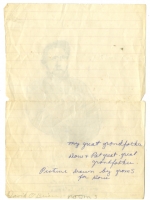 my great grandfather
Mom's & Pat great great
grandfather
Picture drawn by
for Mom